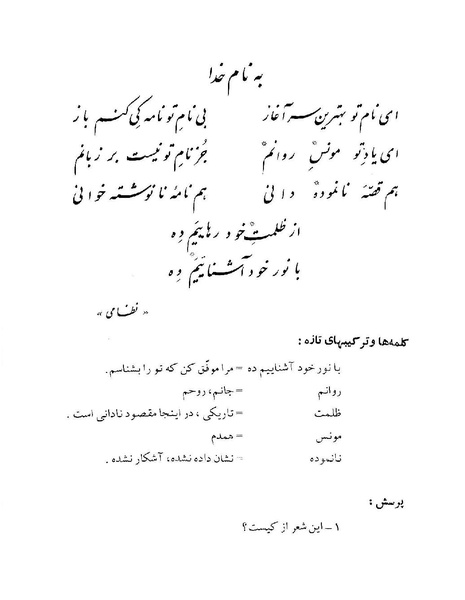 به نام خدا
ای نام تو بهترین سرآغاز بی نامِ تو نامه کی کنم باز
ای یادِ تو مونسِ روانم جُز نامِ تو نیست بر زبانم
هم قصّهٔ نانموده دانی هم نامهٔ نانوشته خوانی
از ظلمتِ خود رهاییم ده
با نور خود آشناییم ده
« نظامی »
کلمه‌ها و ترکیبهای تازه :
با نور خود آشناییم ده = مرا موفّق کن که تو را بشناسم.
روانم = جانم، روحم
ظلمت = تاریکی، در اینجا مقصود نادانی است .
مونس = همدم
نانموده = نشان داده نشده، آشکار نشده .
پرسش :
۱ – این شعر از کیست؟